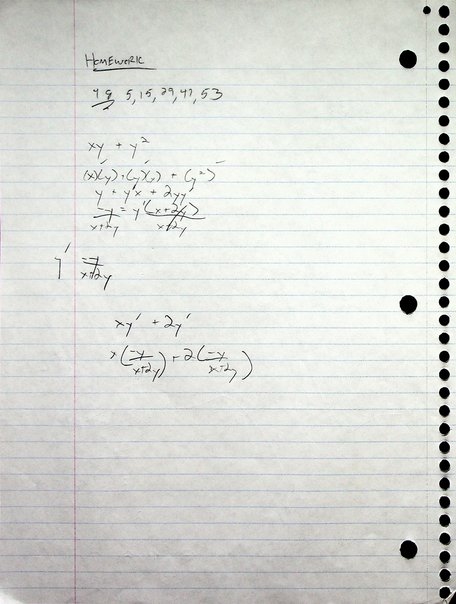 HOMEWORK
5, 15, 29, 41, 53
xy + y²
(x)'(y) + (y)'(x) + (y²)'
y + y'x + 2yy'
-y/x+2y = y'(x+2y)/x+2y
y' -y/x+2y
xy' + 2y'
x(-y/x+2y) + 2(-y/x+2y)